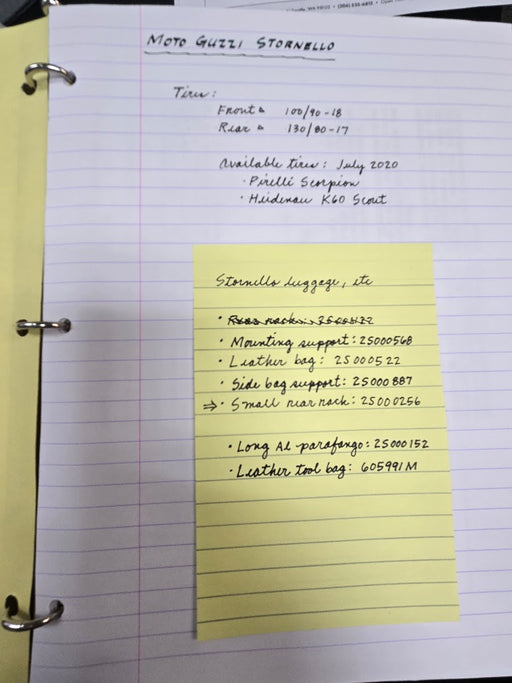 MOTO GUZZI STORNELLO
Tires:
Front 100/90-18
Rear 130/80-17
Available tires: July 2020
· Pirelli Scorpion
· Heidenau K60 Scout
Stornello luggage, etc
· Rear rack:
· Mounting support: 25000568
· Leather bag: 25000522
· Side bag support: 25000887
⇒ · Small rear rack: 25000256
· Long Al parafango: 25000152
· Leather tool bag: 605991M